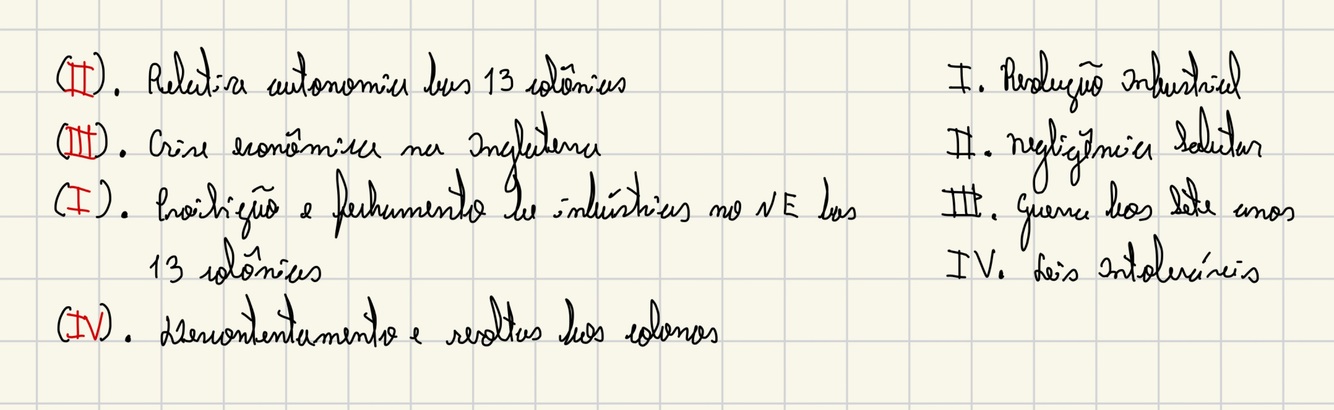 (II). Relativa autonomia das 13 colônias
(III). Crise econômica na Inglaterra
(I). Proibição e fechamento de indústrias no NE das
13 colônias
(IV). Descontentamento e revoltas dos colonos
I. Revolução Industrial
II. Negligência Salutar
III. Guerra dos Sete anos
IV. Leis Intoleráveis